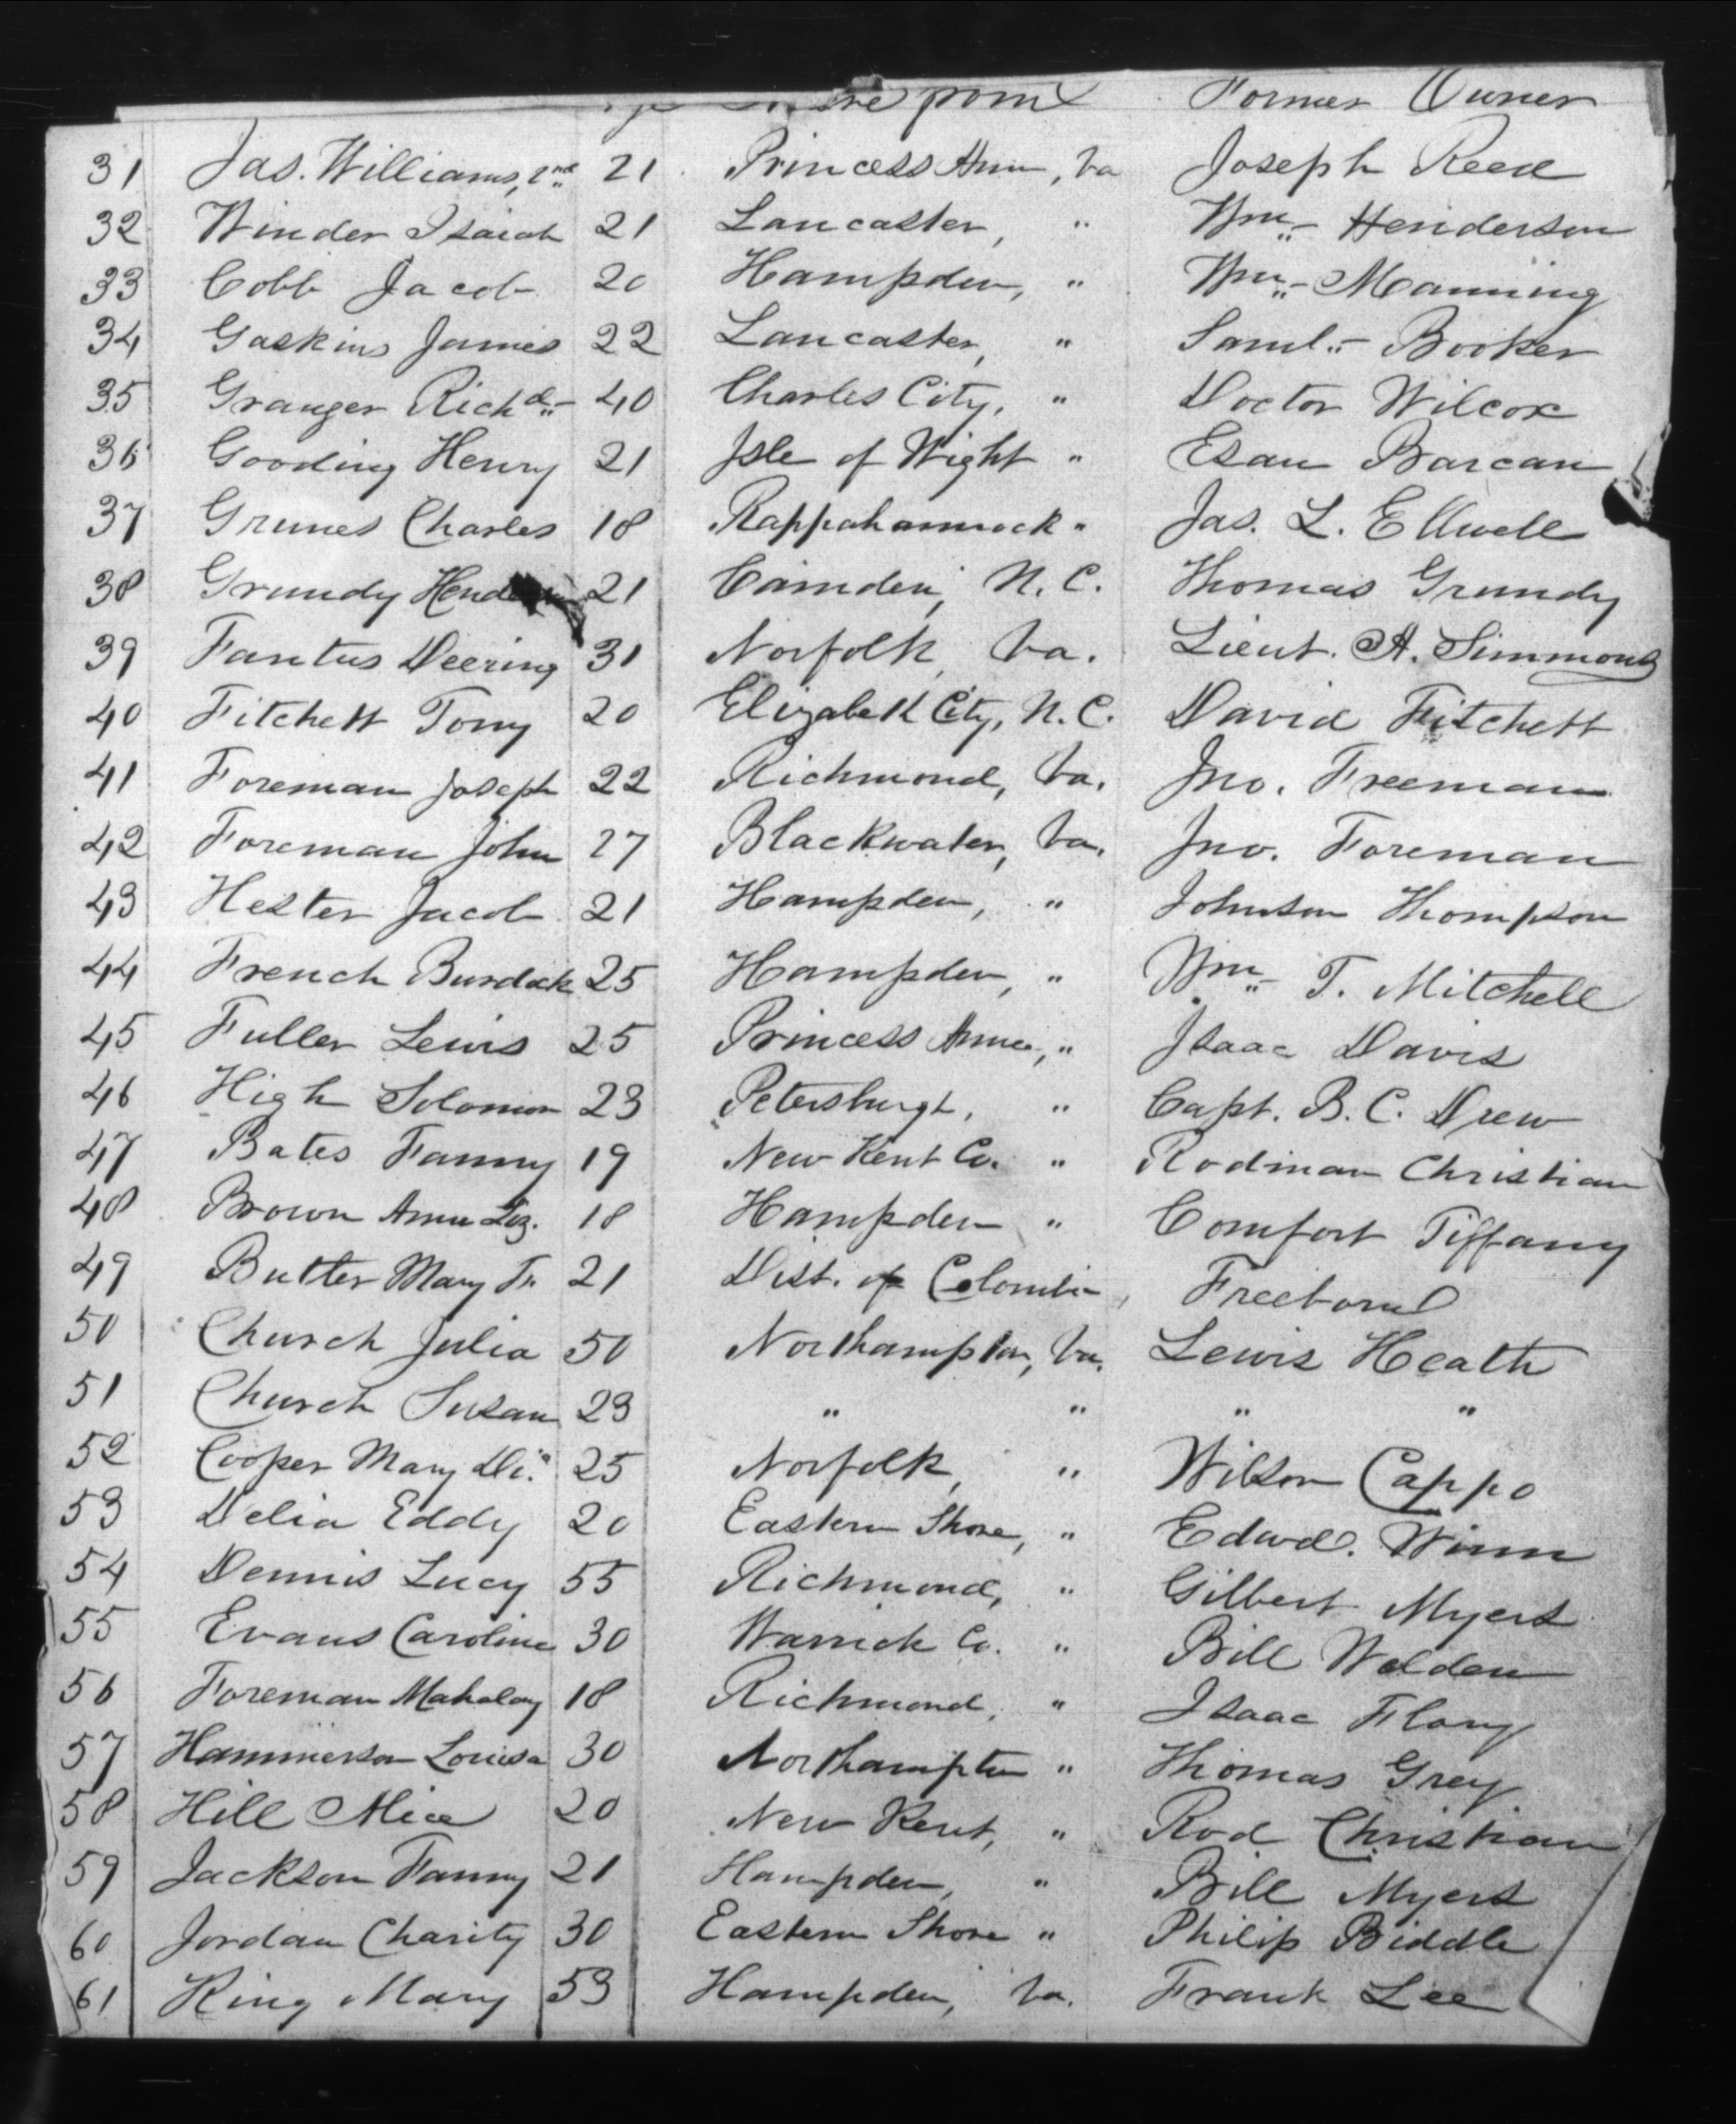 Former Owner
31 Jas. Williams, 2nd 21 Princess Ann, Va Joseph Reed
32 Winder Isaiah 21 Lancaster, " Wm. Henderson
33 Cobb Jacob 20 Hampden, " Wm. Manning
34 Gaskins James 22 Lancaster, " Saml. Booker
35 Granger Richd. 40 Charles City, " Doctor Wilcox
36 Gooding Henry 21 Isle of Wight " Esau Barcan
37 Grunes Charles 18 Rappahannock " Jas. L. Ellwell
38 Grundy 21 Camden, N. C. Thomas Grundy
39 Fantus Deering 31 Norfolk, Va. Lieut. A. Simmons
40 Fitchett Tony 20 Elizabeth City, N. C. David Fitchett
41 Foreman Joseph 22 Richmond, Va. Jno. Freeman
42 Foreman John 27 Blackwater, Va. Jno. Foreman
43 Hester Jacob 21 Hampden, " Johnson Thompson
44 French Burdick 25 Hampden, " Wm. T. Mitchell
45 Fuller Lewis 25 Princess Anne, " Isaac Davis
46 High Solomon 23 Petersburgh, " Capt. B. C. Drew
47 Bates Fanny 19 New Kent Co. " Rodman Christian
48 Brown Ann Liz. 18 Hampden " Comfort Tiffany
49 Butler Mary Fr. 21 Dist. of Colombia, Freeborn
50 Church Julia 50 Northampton, Va. Lewis Heath
51 Church Susan 23 " " " "
52 Cooper Mary Di. 25 Norfolk, " Wilson Cappo
53 Delia Eddy 20 Eastern Shore, " Edwd. Winn
54 Dennis Lucy 55 Richmond, " Gilbert Myers
55 Evans Caroline 30 Warrick Co. " Bill Welden
56 Foreman Mahalay 18 Richmond, " Isaac Flory
57 Hammerson Louisa 30 Northampton " Thomas Grey
58 Hill Alice 20 New Kent, " Rod Christian
59 Jackson Fanny 21 Hampden, " Bill Myers
60 Jordan Charity 30 Eastern Shore " Philip Biddle
61 King Mary 53 Hampden, Va. Frank Lee